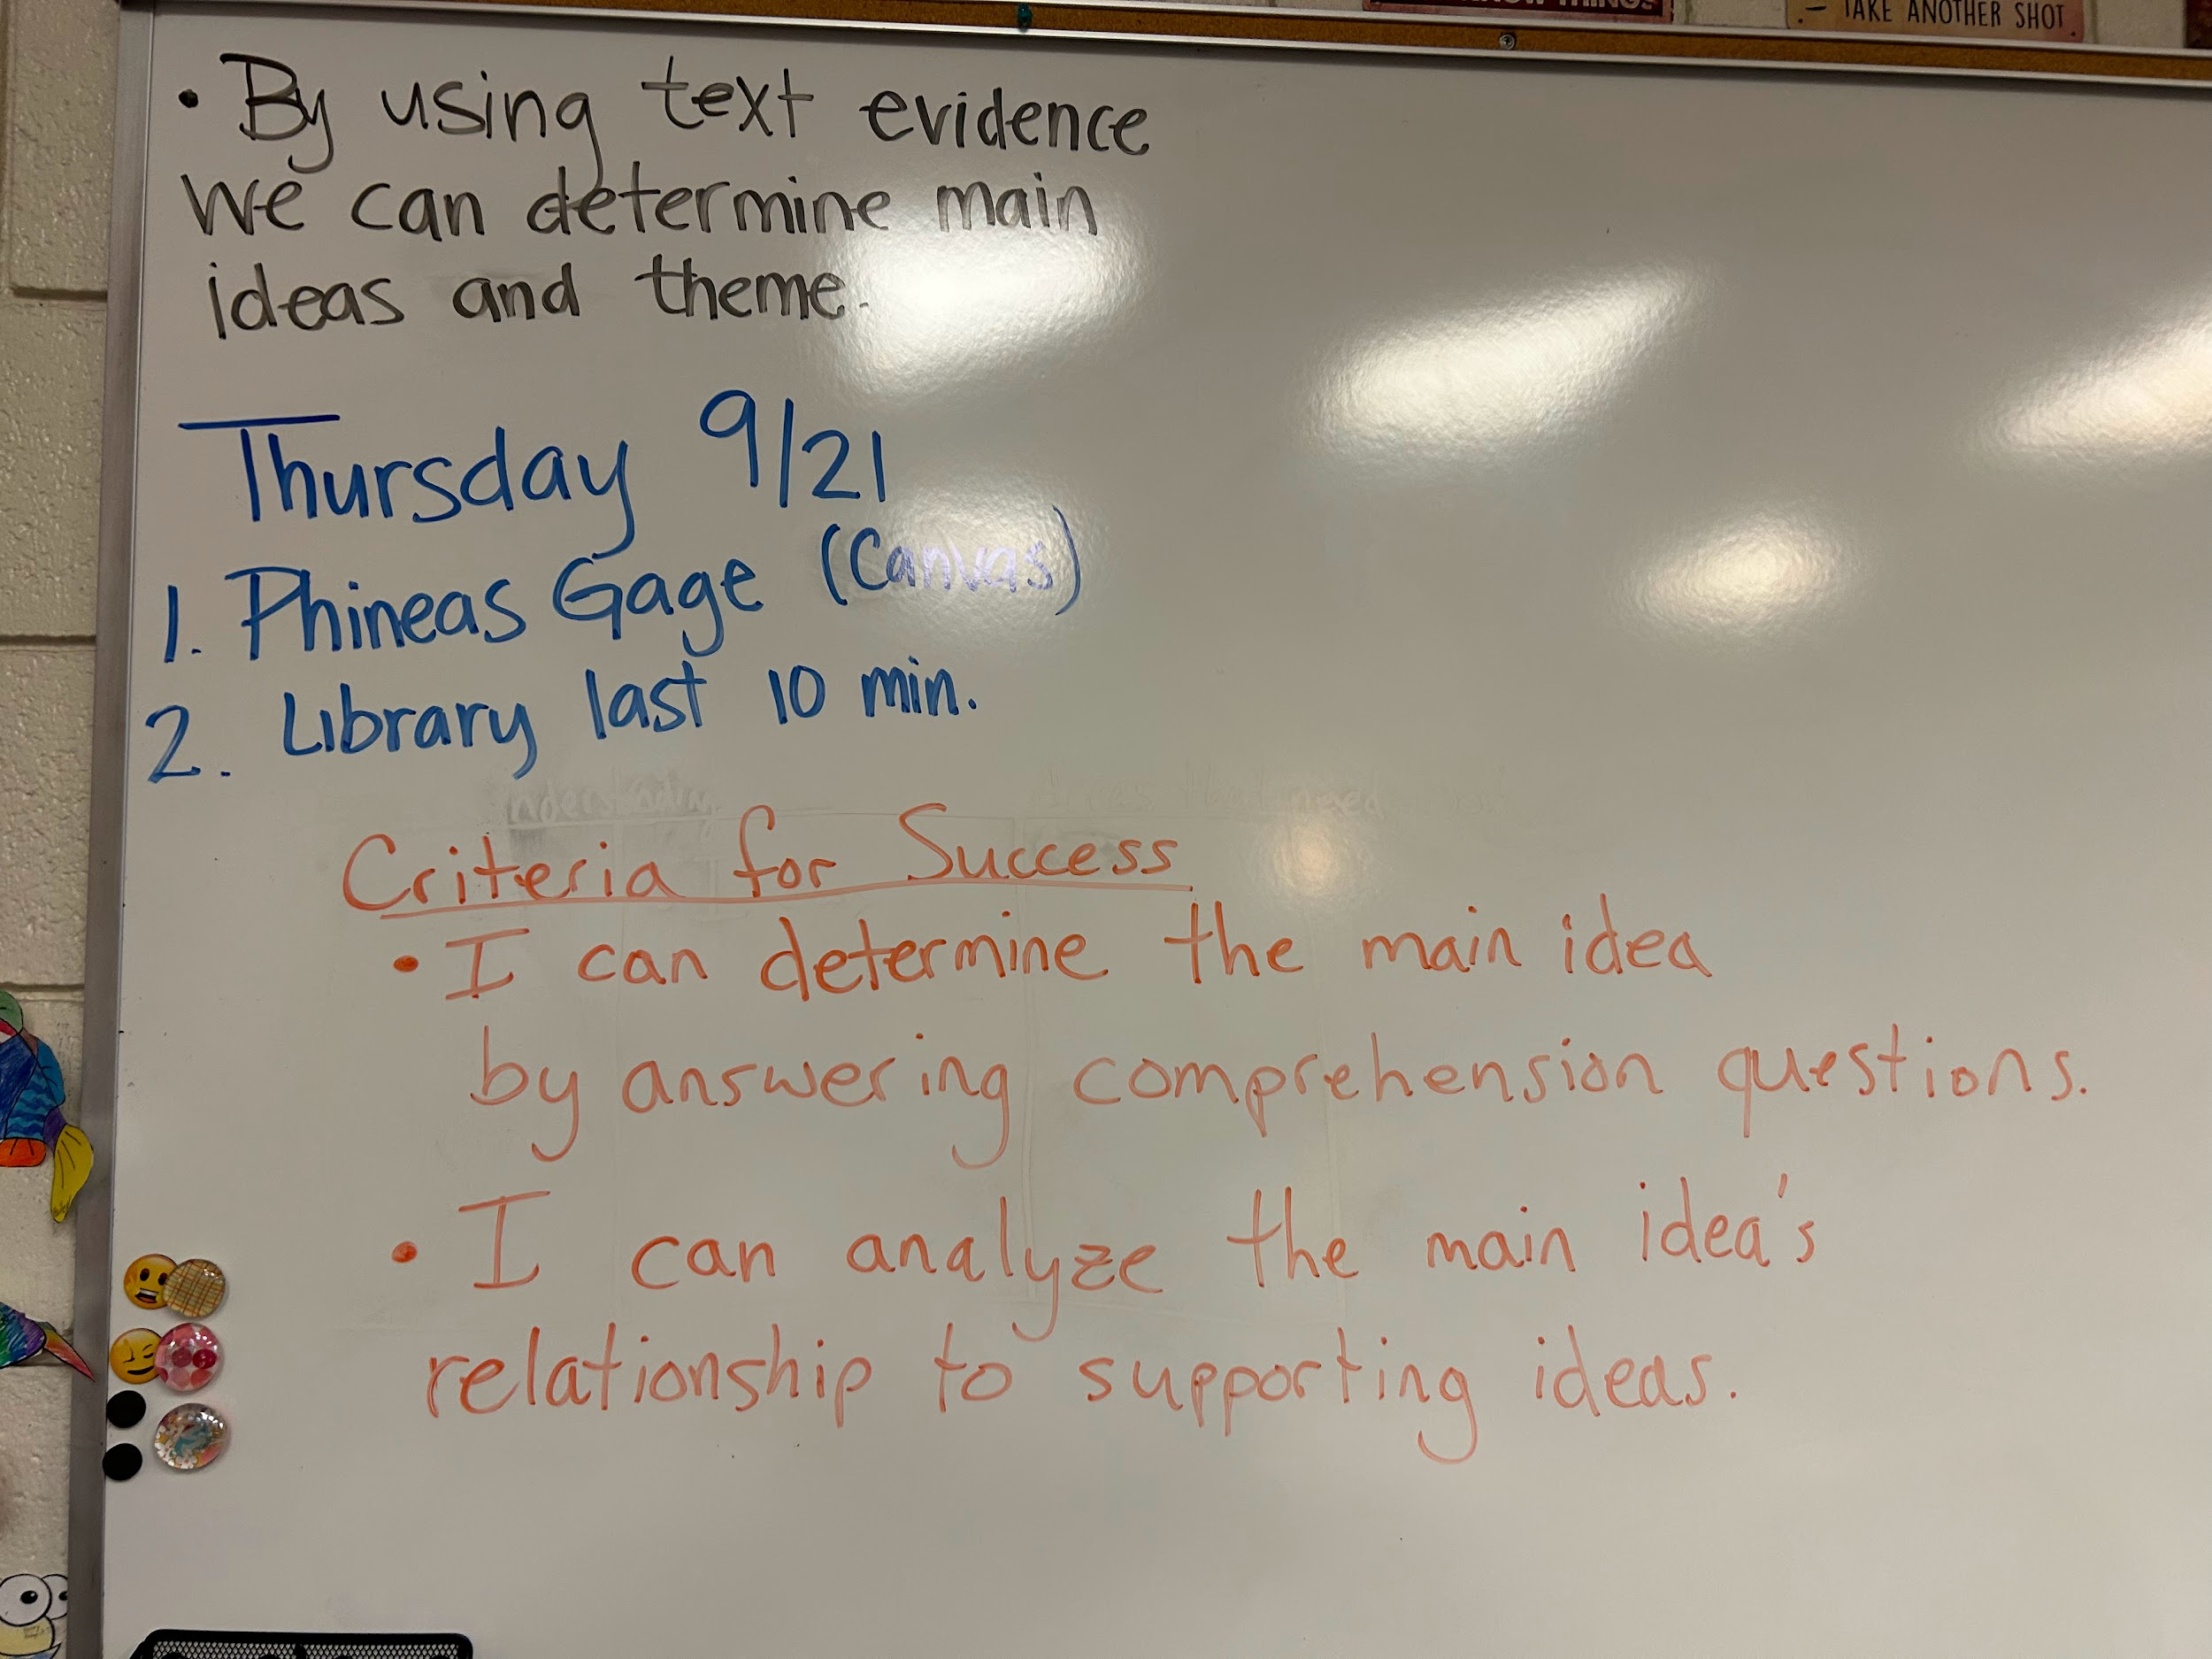 TAKE ANOTHER SHOT
• By using text evidence
we can determine main
ideas and theme.
Thursday 9/21
1. Phineas Gage (Canvas)
2. Library last 10 min.
Criteria for Success
• I can determine the main idea
by answering comprehension questions.
• I can analyze the main idea's
relationship to supporting ideas.